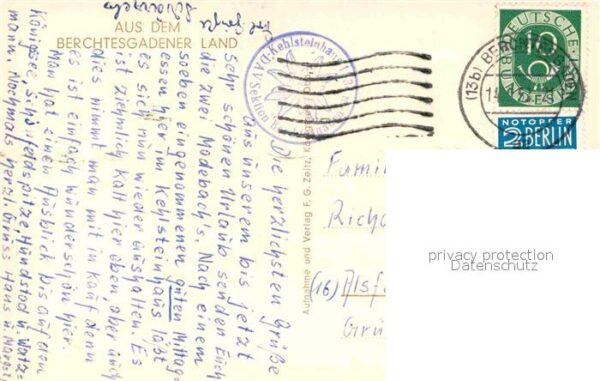 AUS DEM
BERCHTESGADENER LAND
Die herzlichsten Grüße
aus unserem bis jetzt
sehr schönen Urlaub senden Euch
die zwei Madebach's. Nach einem
soeben eingenommenen guten Mittag-
essen hier im Kehlsteinhaus läßt
es sich nun wieder aushalten. Es
ist ziehmlich kalt hier oben, aber auch
dies nimmt man mit in kauf denn
es ist einfach wunderschön hier.
Man hat einen Ausblick bis auf den
Königsee Schönfeldspitze, Hundstod u. Watz=
mann. Nochmals herzl. Gruss Hans u.
D.A.V. Sektion
Kehlsteinhaus
Aufnahme und Verlag F. G. Zeitz,
DEUTSCHE
BUNDESPOST
10
(13b) BERCHTESGADEN
NOTOPFER
2 BERLIN
Famil
Richa
(16) Alsf
Grü
privacy protection
Datenschutz